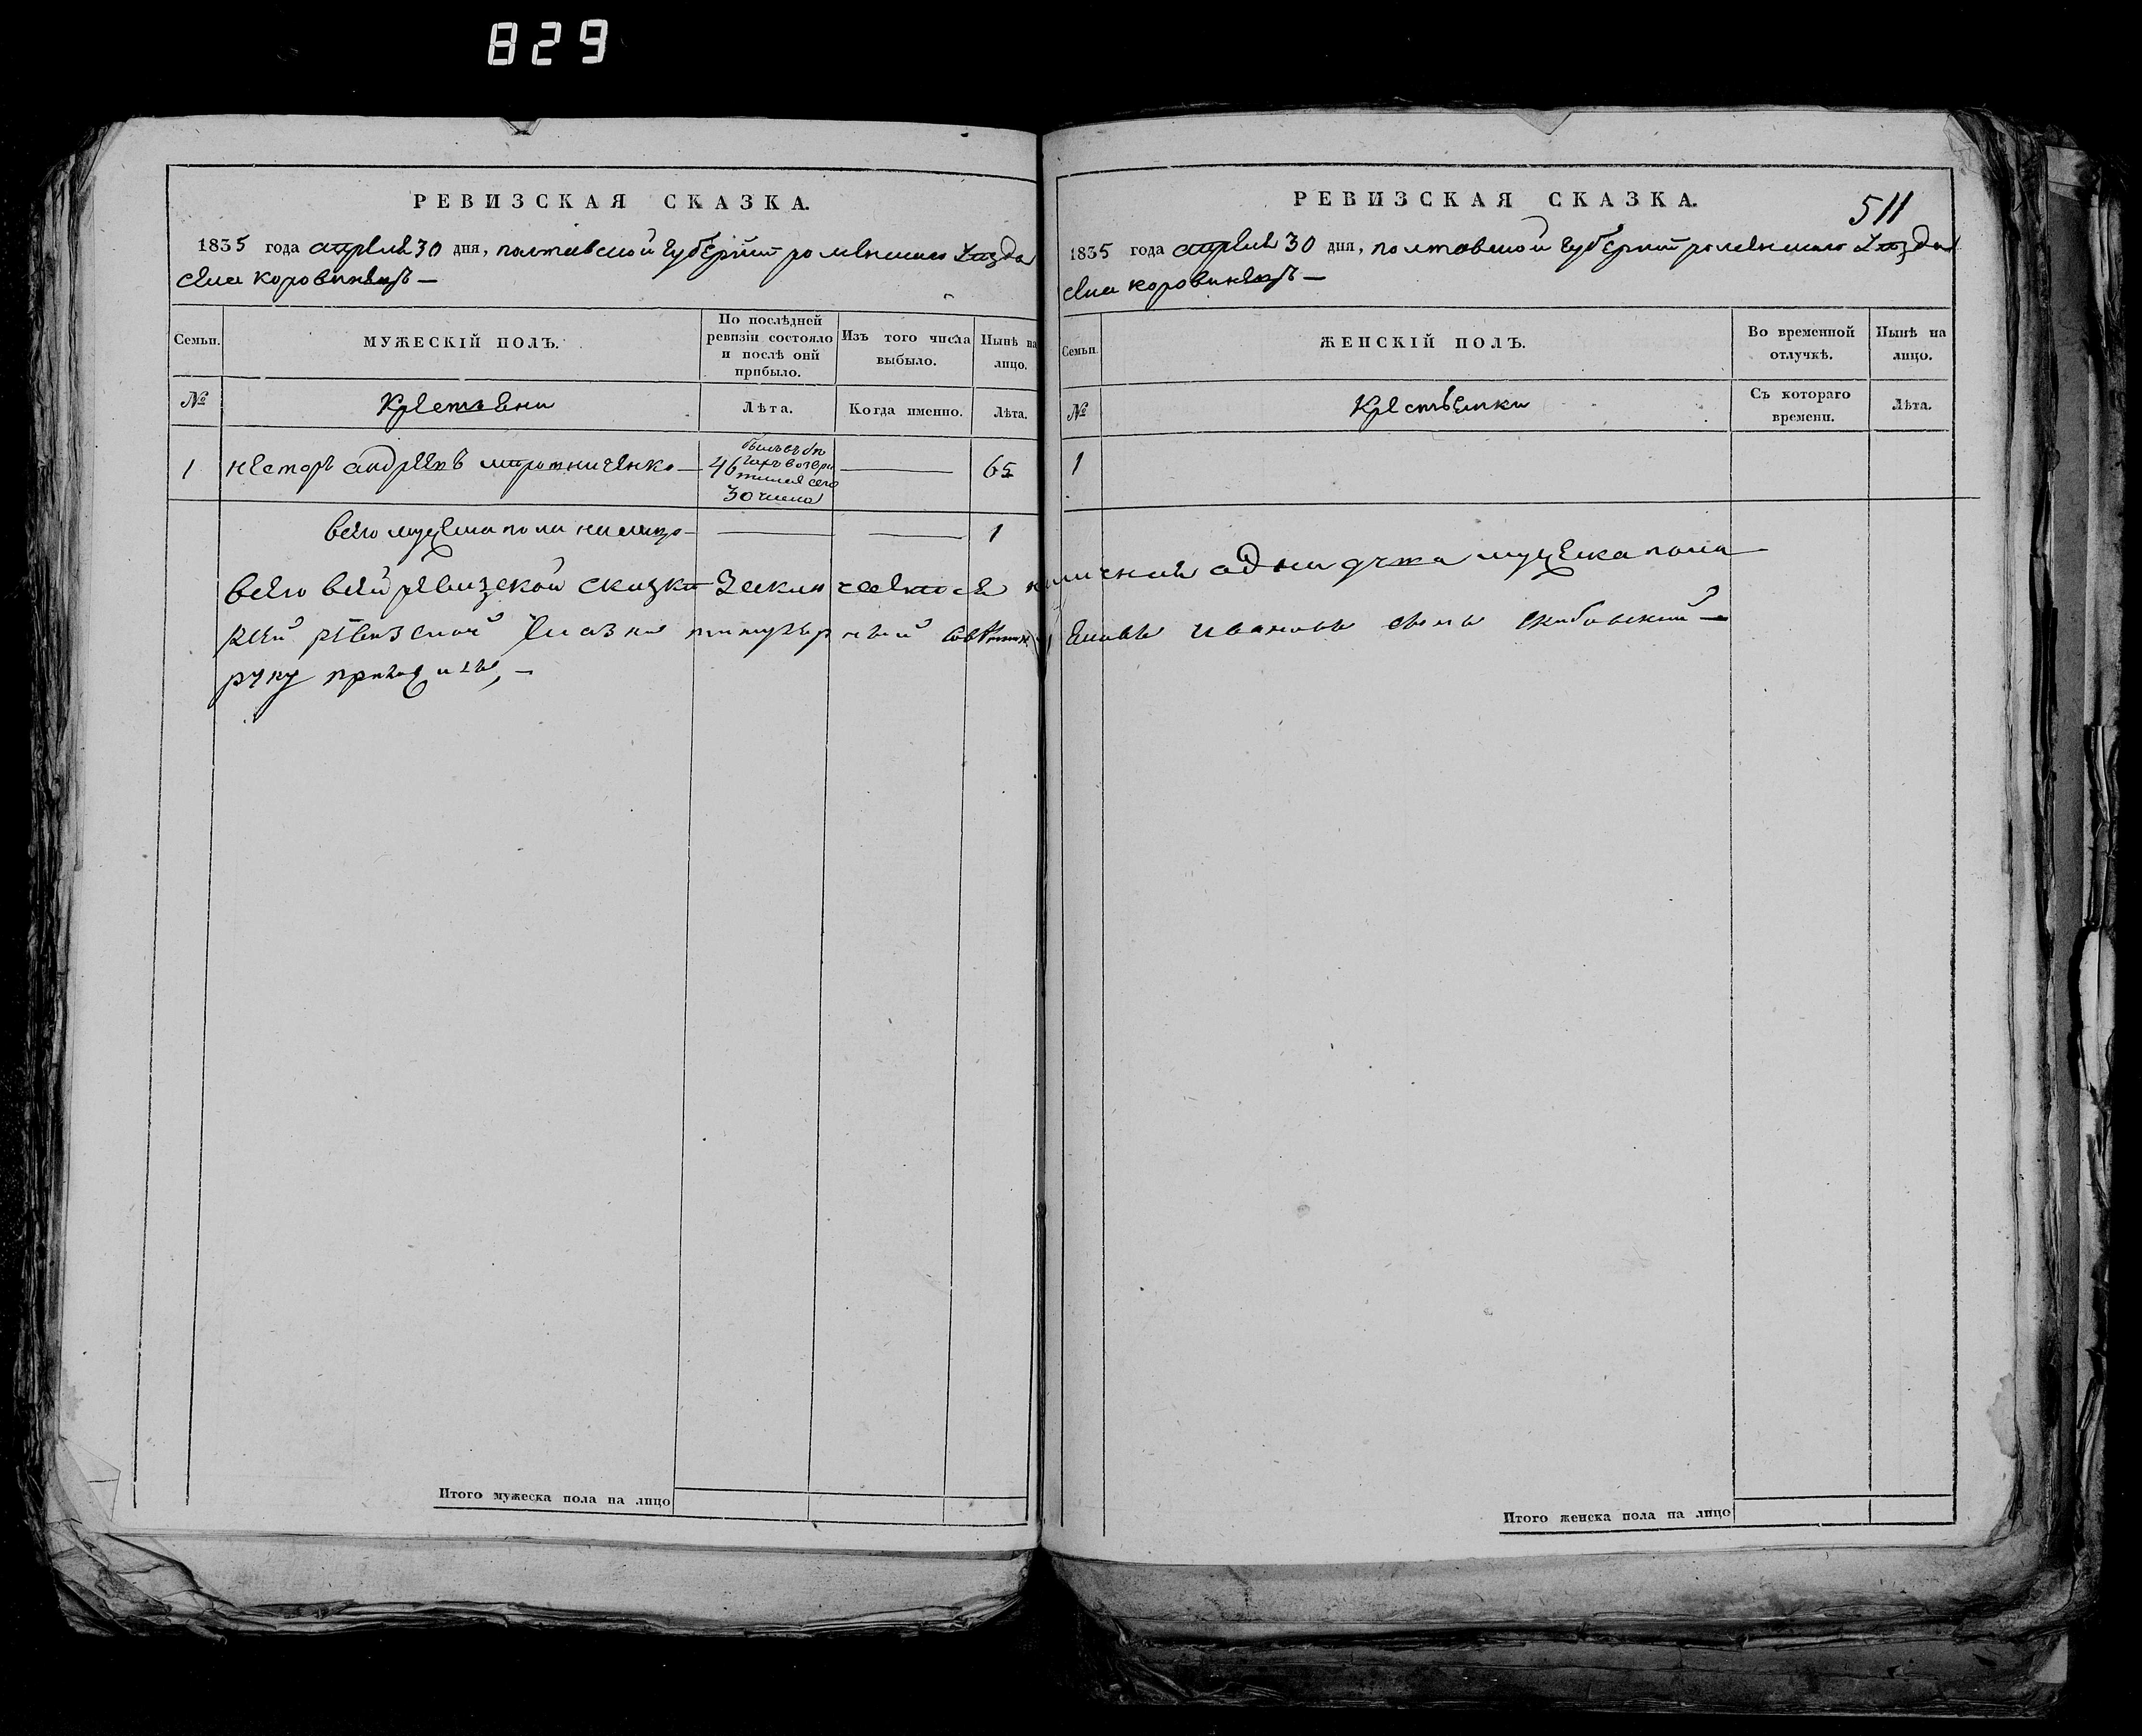 829
РЕВИЗСКАЯ СКАЗКА.
1835 года апреля 30 дня, полтавской губернии роменского уезда
села коровинецъ —
Семьи.
МУЖЕСКІЙ ПОЛЪ.
По послѣдней ревизіи состояло и послѣ оній прибыло.
Изъ того числа выбыло.
Нынѣ на лицо.
№
Крестьяни
Лѣта.
Когда именно.
Лѣта.
1
несторъ андреевъ мирошниченко —
46
былъ въ бе
гахъ возвра
тился сего
30 числа
65
всего мужеска пола на лицо —
1
РЕВИЗСКАЯ СКАЗКА.
511
1835 года апреля 30 дня, полтавской губернии роменского уезда
села коровинецъ —
Семьи.
ЖЕНСКІЙ ПОЛЪ.
Во временной отлучкѣ.
Нынѣ на лицо.
№
Крестьянки
Съ котораго времени.
Лѣта.
1
всего в сей ревизской сказки заключается наличная одна душа мужеска пола
к сей ревизской сказки титулярный советникъ Иванов сынъ
руку приложилъ, —
Итого мужеска пола на лицо
Итого женска пола на лицо